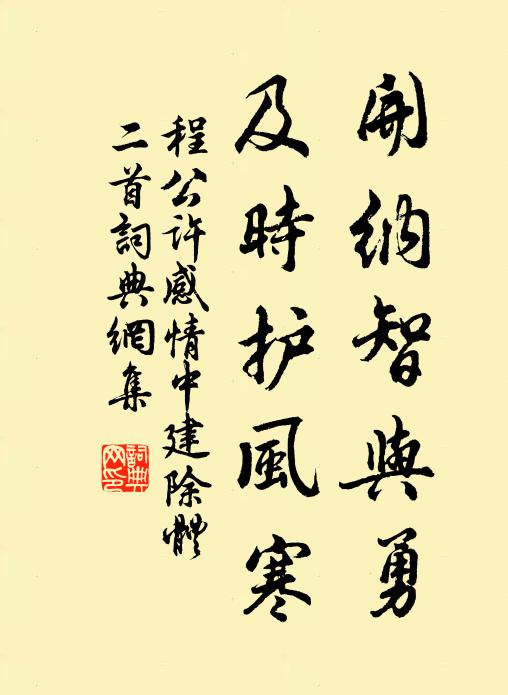 開納智與勇
及時护風寒
程公许感情中建除體
二首詞典網集
詞典網印